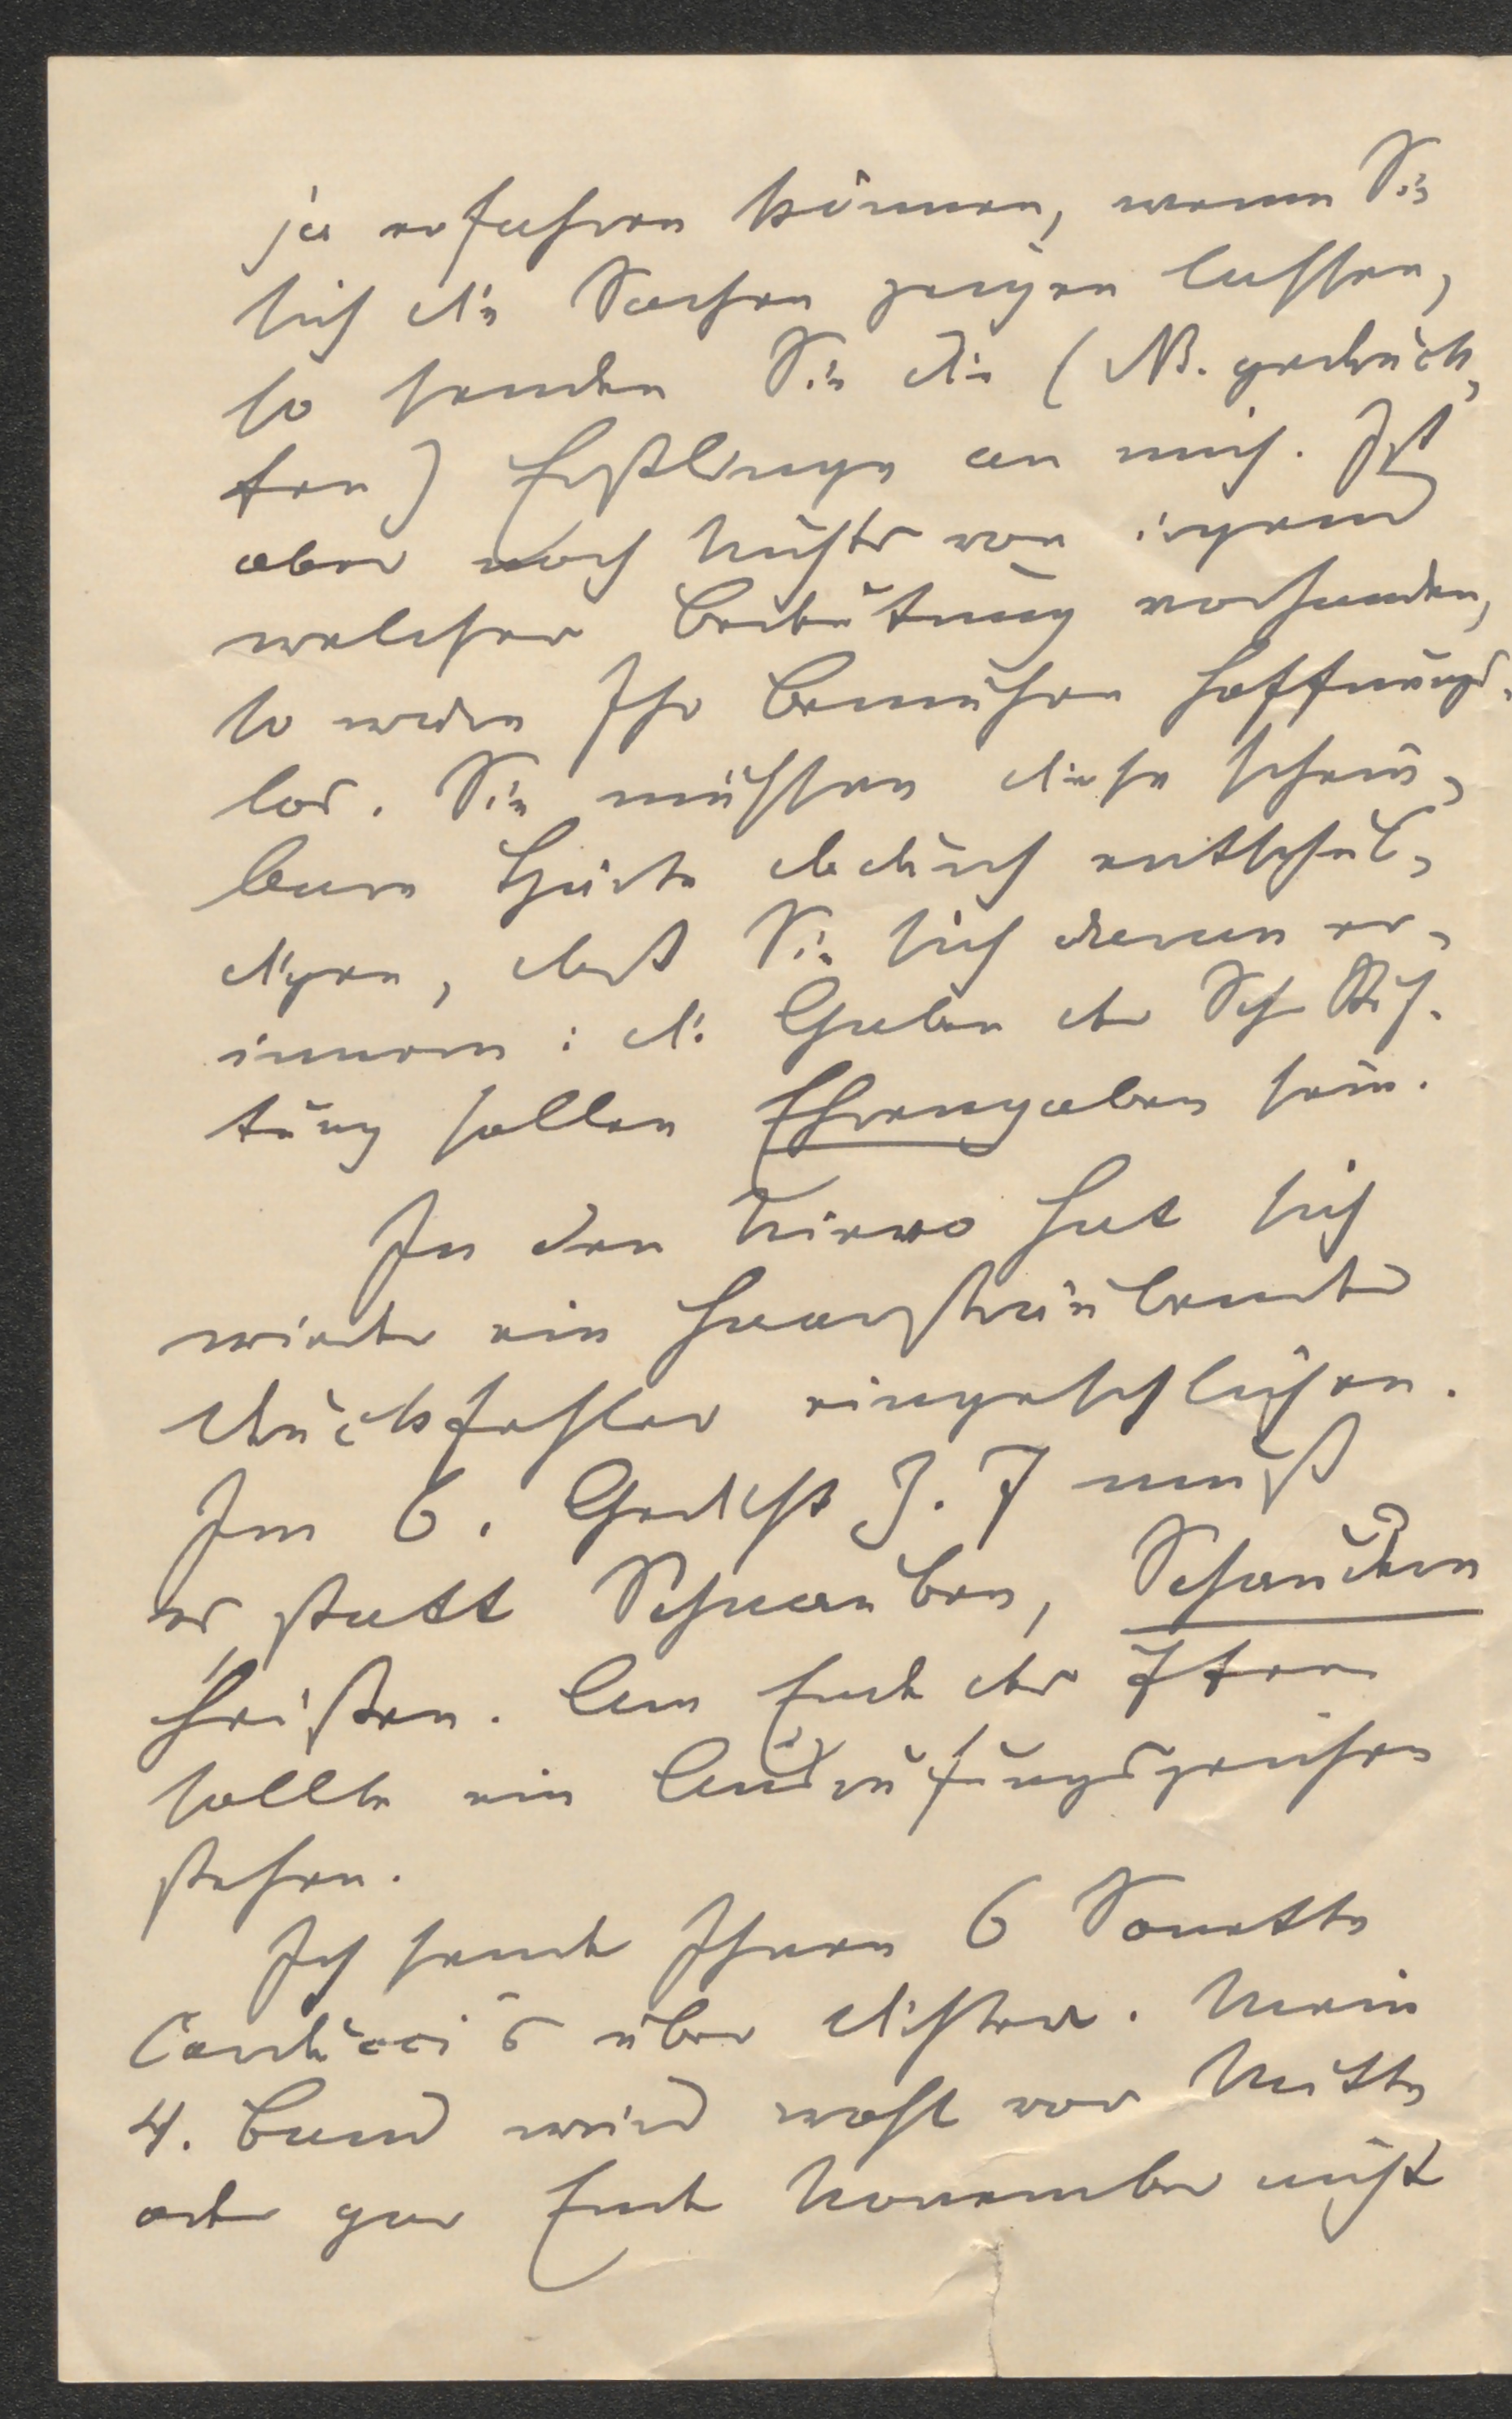 ja erfahren können, wenn Sie
sich die Sachen zeigen lassen,
so senden Sie die (NB. gedruck-
ten) Erstlinge an mich. Ist
aber noch Nichts von irgend
welcher Bedeutung vorhanden,
so wäre Ihr Bemühen hoffnungs-
los. Sie müssen diese schein-
bare Härte dadurch entschul-
digen, daß Sie sich daran er-
innern: die Gaben der Sch Stif-
tung sollen Ehrengaben sein.
In den hat sich
wieder ein haarsträubender
Druckfehler eingeschlichen.
Im 6. Gedicht Z. 7 muß
es statt Schrauben, Schaudern
heißen. Am Ende der 7ten
sollte ein Ausrufungszeichen
stehen.
Ich sende Ihnen 6 Sonette
Carducci's über . Mein
4. Band wird wohl vor Mitte
oder gar Ende November nicht